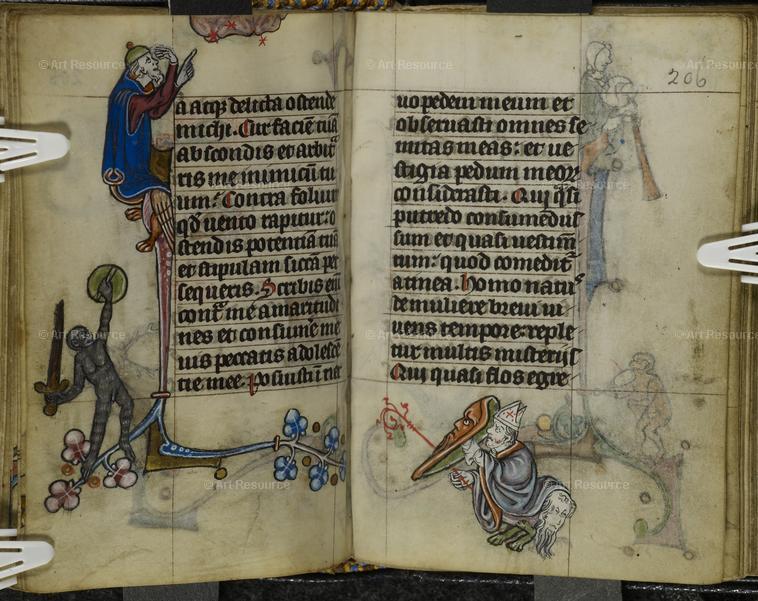 a atq̨ delicta ostende
michi. Cur faciē tuā
abscondis et arbit̃
ris me inimicū tu
um. Contra foliū
qd̄ uento rapitur: o
stendis potentiā tuā
et stipulam siccā per
sequeris. Scribis em̄
cont̃ me amaritudi
nes et consumē me
uis peccatis adolescē
tie mee. Posuisti ī ner
uo pedem meum et
obseruasti omnes se
mitas meas: et ue
stigia pedum meoꝝ
considerasti. Qui q̃si
putredo consumēdus
sum et quasi uestim̄
tum: quod comedit̃
a tinea. Homo natus
de muliere breui ui
uens tempore: reple
tur multis miserijs
Qui quasi flos egre
206
© Art Resource